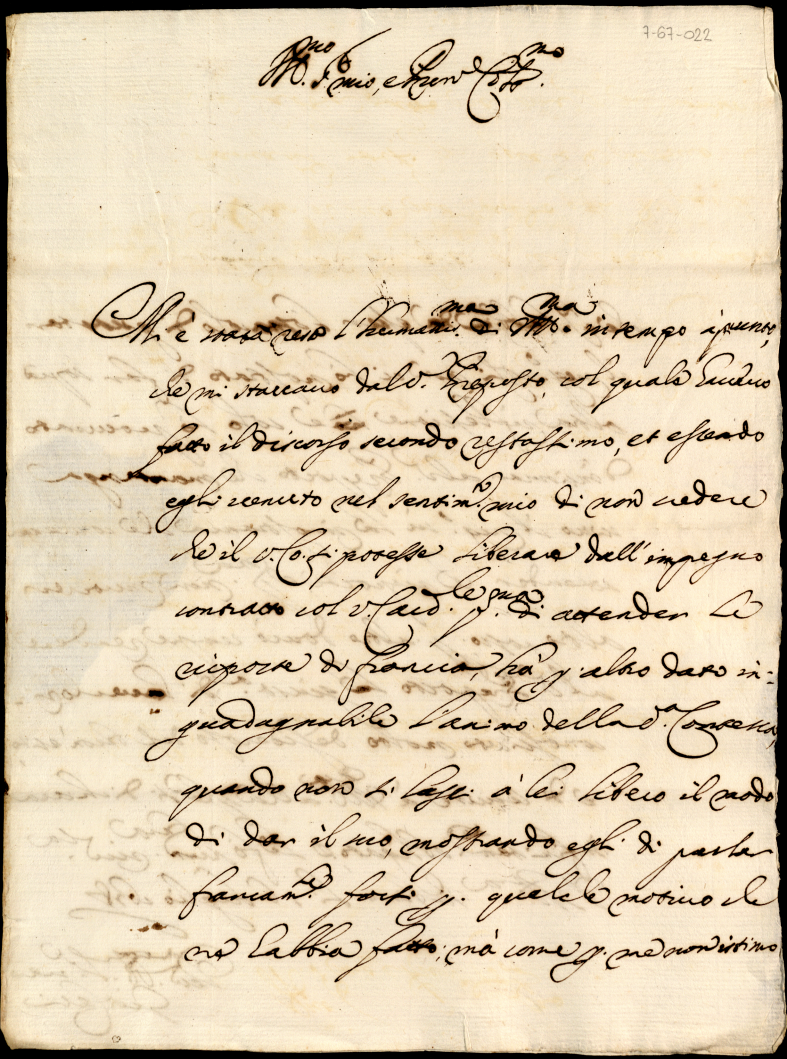 7-67-022
Ill.mo S.r mio, e Pron Coll.mo
Mi è stata resa l'humaniss.ma di V.S. Ill.ma in tempo apunto,
che mi staccavo dal S.r Preposto, col quale havevo
fatto il discorso secondo restassimo, et essendo
egli venuto nel sentim.to mio di non vedere
che il S. Co. si potesse liberare dall'impegno
contratto col S. Card.le p.ma di attender le
risposte di Francia, hà p. altro dato in=
guadagnabile l'animo della S.a Contessa,
quando non si lassi à lei libero il modo
di dar il suo, mostrando egli di parlar
francam.te forsi p. qualche motivo che
ne habbia fatto; mà come p. me non istimo